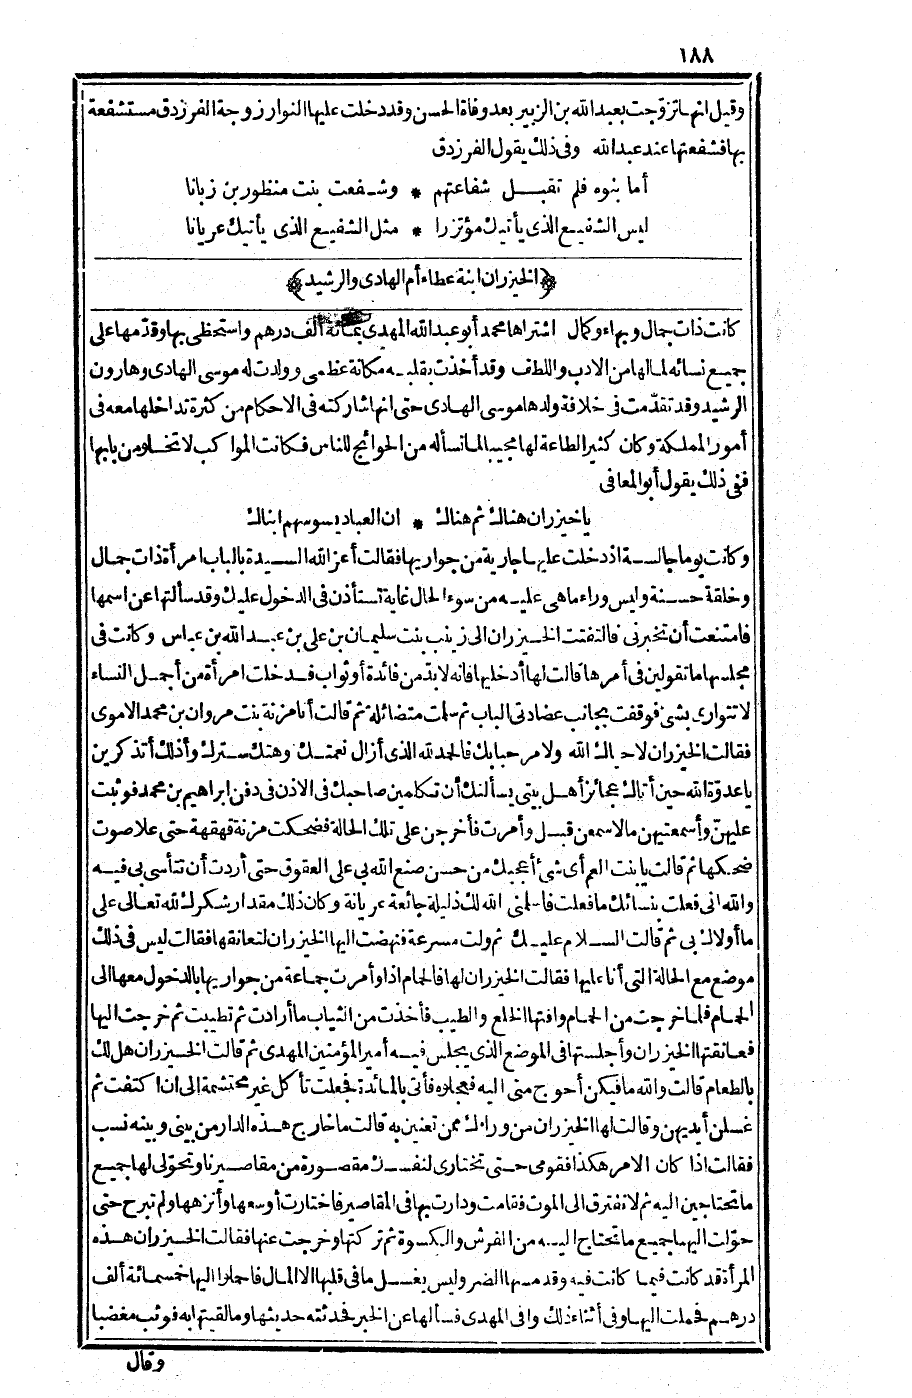 ١٨٨
وقيل انها تزوّجت بعبد الله بن الزبير بعد وفاة الحسن وقد دخلت عليها النوار زوجة الفرزدق مستشفعة
بها فشفعتها عند عبد الله وفى ذلك يقول الفرزدق
أما بنوه فلم تقبل شفاعتهم * وشفعت بنت منظور بن زبانا
ليس الشفيع الذى يأتيك مؤتزرا * مثل الشفيع الذى يأتيك عريانا
﴿الخيزران ابنة عطاء أم الهادى والرشيد﴾
كانت ذات جمال وبهاء وكمال اشتراها محمد أبو عبد الله المهدى بمائة ألف درهم واستحظى بها وقدّمها على
جميع نسائه لما لها من الادب واللطف وقد أخذت بقلبه مكانة عظمى وولدت له موسى الهادى وهارون
الرشيد وقد تقدّمت فى خلافة ولدها موسى الهادى حتى انها شاركته فى الاحكام من كثرة تداخلها معه فى
أمور المملكة وكان كثير الطاعة لها مجيبا لما تسأله من الحوائج للناس فكانت المواكب لا تخلو من بابها
ففى ذلك يقول أبو المعافى
يا خيزران هناك ثم هناك * ان العباد يسوسهم ابناك
وكانت يوما جالسة اذ دخلت عليها جارية من جواريها فقالت أعز الله السيدة بالباب امرأة ذات جمال
وخلقة حسنة وليس وراء ماهى عليه من سوء الحال غاية تستأذن فى الدخول عليك وقد سألتها عن اسمها
فامتنعت أن تخبرنى فالتفتت الخيزران الى زينب بنت سليمان بن على بن عبد الله بن عباس وكانت فى
مجلسها ما تقولين فى أمرها قالت لها أدخليها فانه لابدّ من فائدة أو ثواب فدخلت امرأة من أجمل النساء
لا تتوارى بشئ فوقفت بجانب عضادتى الباب ثم سلمت متضائلة ثم قالت أنا مزنة بنت مروان بن محمد الاموى
فقالت الخيزران لا حياك الله ولا مرحبا بك فالحمد لله الذى أزال نعمتك وهتك سترك وأذلك أتذكرين
يا عدوّة الله حين أتاك عجائز أهل بيتى يسألنك أن تكلمين صاحبك فى الاذن فى دفن ابراهيم بن محمد فوثبت
عليهن وأسمعتيهن مالا سمعن قبل وأمرت فأخرجن على تلك الحالة فضحكت مزنة قهقهة حتى علا صوت
ضحكها ثم قالت يا بنت العم أى شئ أعجبك من حسن صنع الله بى على العقوق حتى أردت أن تتأسى بى فيه
والله انى فعلت بنسائك ما فعلت فأسلمنى الله لك ذليلة جائعة عريانة وكان ذلك مقدار شكرك لله تعالى على
ما أولاك بى ثم قالت السلام عليك ثم ولت مسرعة فنهضت اليها الخيزران لتعانقها فقالت ليس فى ذلك
موضع مع الحالة التى أنا عليها فقالت الخيزران لها فالحمام اذا وأمرت جماعة من جواريها بالدخول معها الى
الحمام فلما خرجت من الحمام وافتها الخلع والطيب فأخذت من الثياب ما أرادت ثم تطيبت ثم خرجت اليها
فعانقتها الخيزران وأجلستها فى الموضع الذى يجلس فيه أمير المؤمنين المهدى ثم قالت الخيزران هل لك
بالطعام قالت والله ما فيكن أحوج منى اليه فعجلوه فأتى بالمائدة فجعلت تأكل غير محتشمة الى ان اكتفت ثم
غسلن أيديهن وقالت لها الخيزران من وراءك ممن تعتنين به قالت ما خارج هذه الدار من بينى وبينه نسب
فقالت اذا كان الامر هكذا فقومى حتى تختارى لنفسك مقصورة من مقاصيرنا وتحوّلى لها جميع
ما تحتاجين اليه ثم لا نفترق الى الموت فقامت ودارت بها فى المقاصير فاختارت أوسعها وأنزهها ولم تبرح حتى
حوّلت اليها جميع ما تحتاج اليه من الفرش والكسوة ثم تركتها وخرجت عنها فقالت الخيزران هذه
المرأة قد كانت فيما كانت فيه وقد مسها الضر وليس يغسل ما فى قلبها الا المال فاحملوا اليها خمسمائة ألف
درهم فحملت اليها وفى أثناء ذلك وافى المهدى فسألها عن الخبر فحدثته حديثها وما لقيتها به فوثب مغضبا
وقال